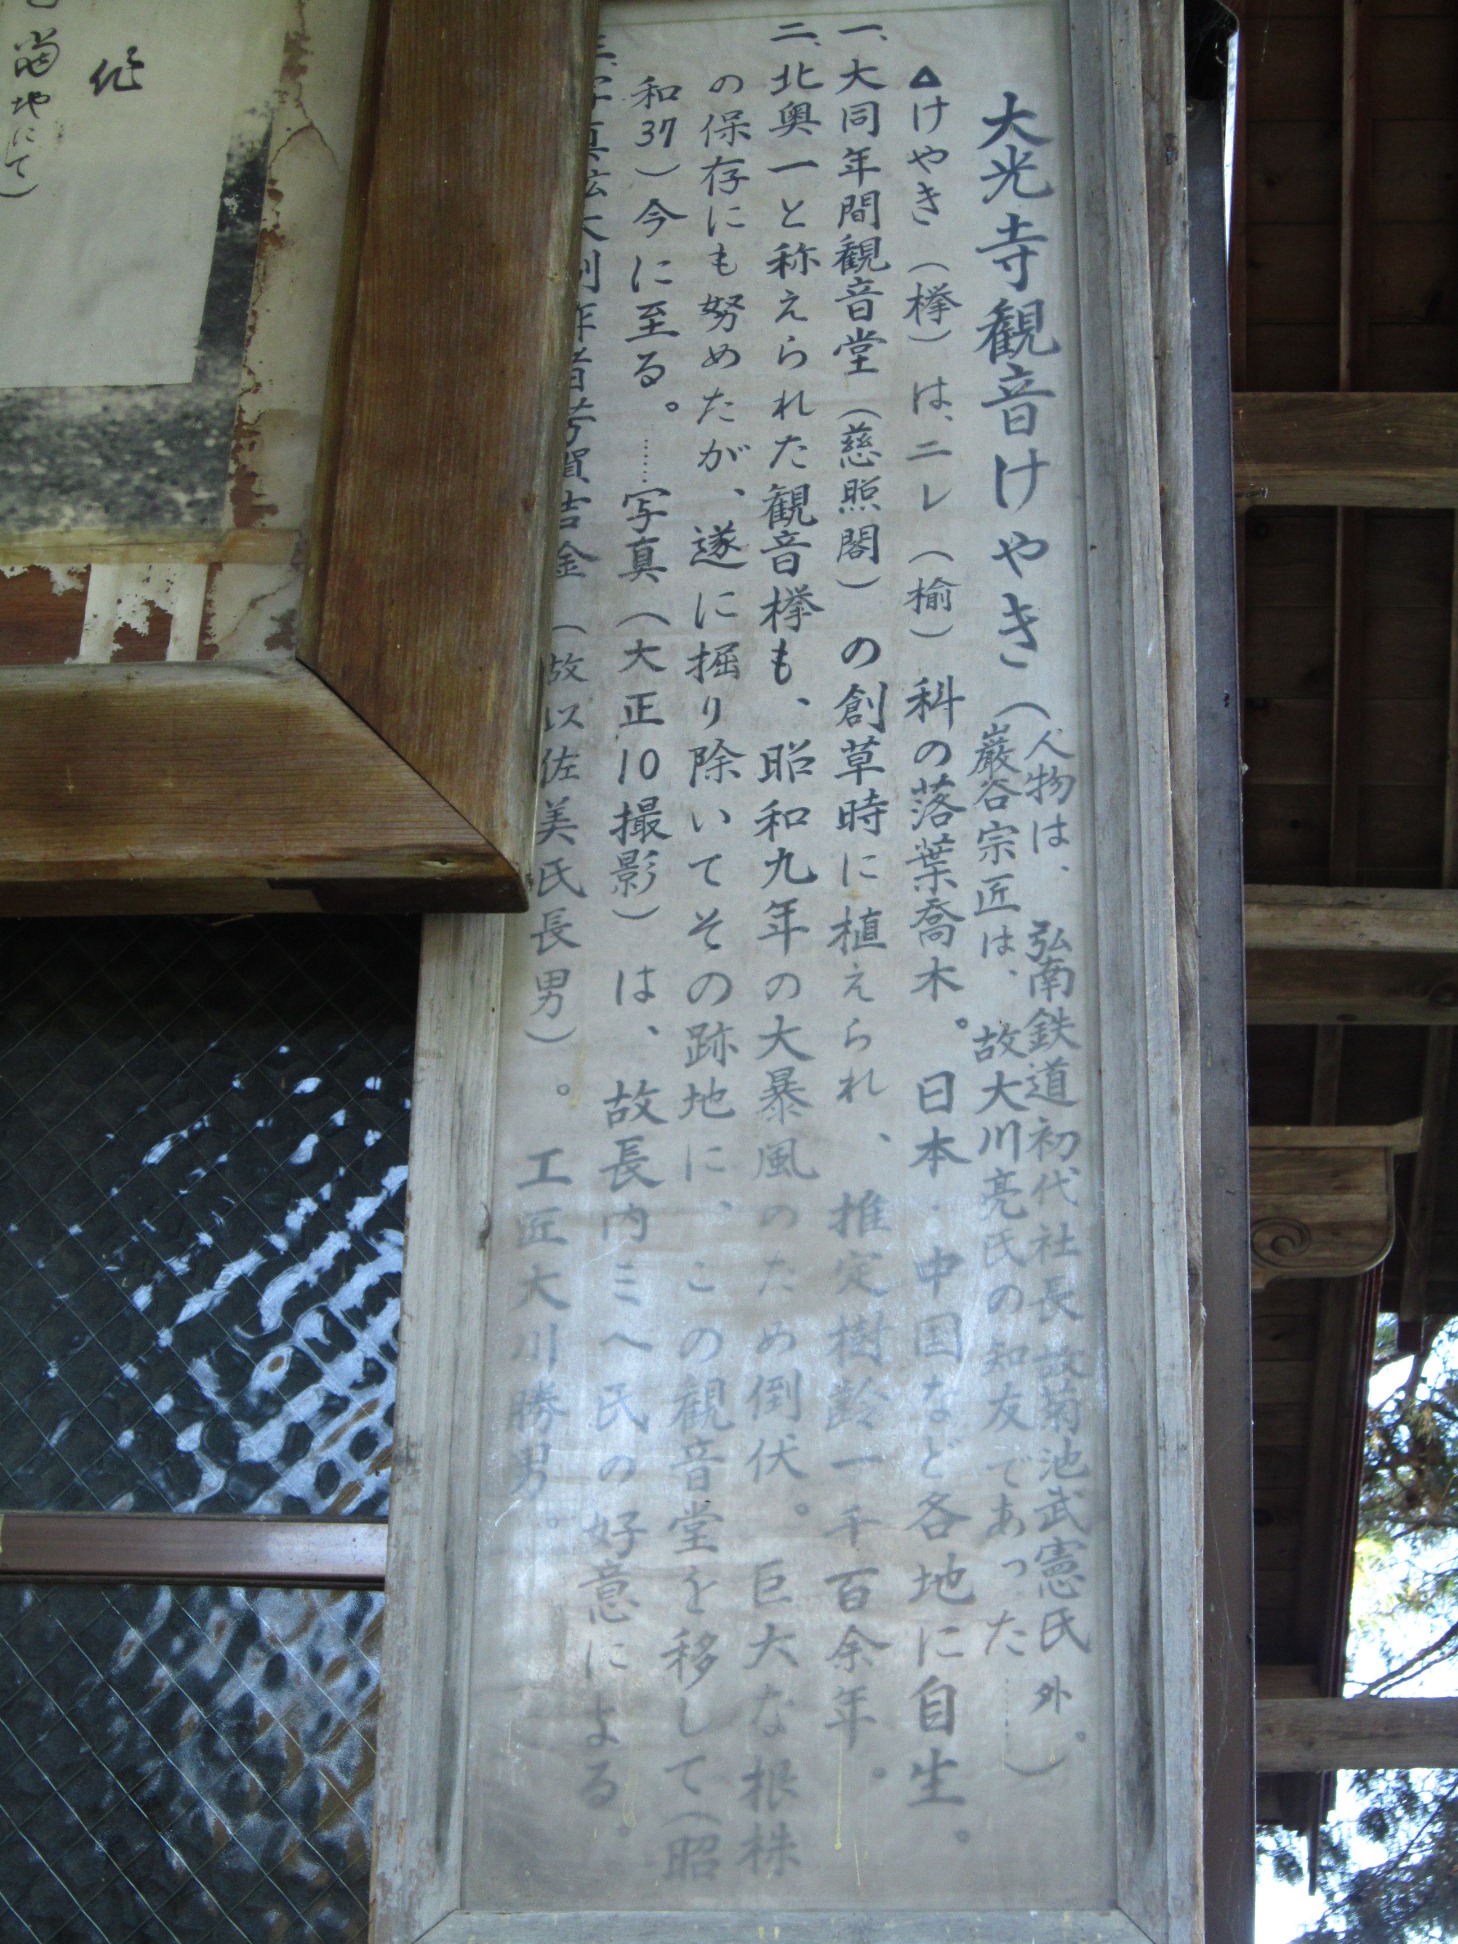 大光寺観音けやき（人物は、弘南鉄道初代社長故菊池武憲氏外。
巌谷宗匠は、故大川亮氏の知友であった……）
▲けやき（欅）は、ニレ（楡）科の落葉喬木。日本・中国など各地に自生。
一、大同年間観音堂（慈照閣）の創草時に植えられ、推定樹齢一千百余年。
二、北奥一と称えられた観音欅も、昭和九年の大暴風のため倒伏。巨大な根株
の保存にも努めたが、遂に掘り除いてその跡地に、この観音堂を移して（昭
和37）今に至る。……写真（大正10撮影）は、故長内ミヘ氏の好意による。
金（故以佐美氏長男）。工匠大川勝男。
作
地にて）